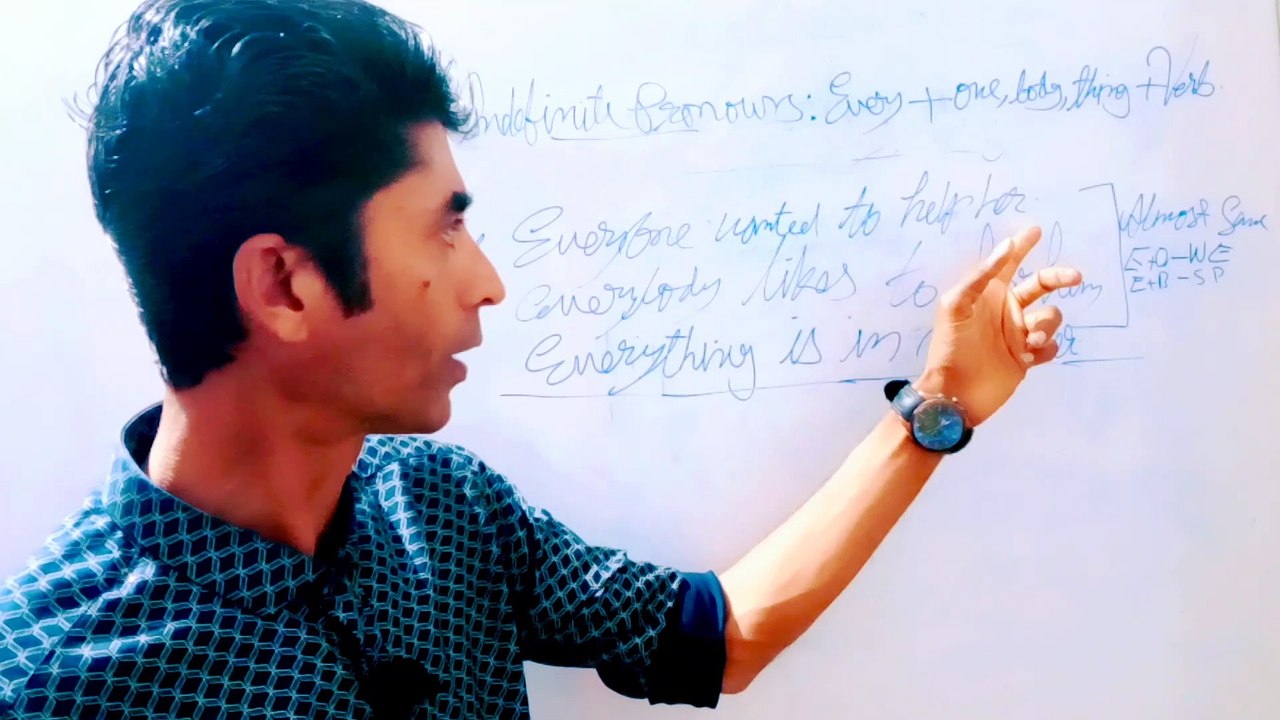 Indefinite Pronouns: Every + one, body, thing + Verb.
Everyone wanted to help her.
everybody likes to
Everything is in
Almost Same
E+O - WE
E+B - SP